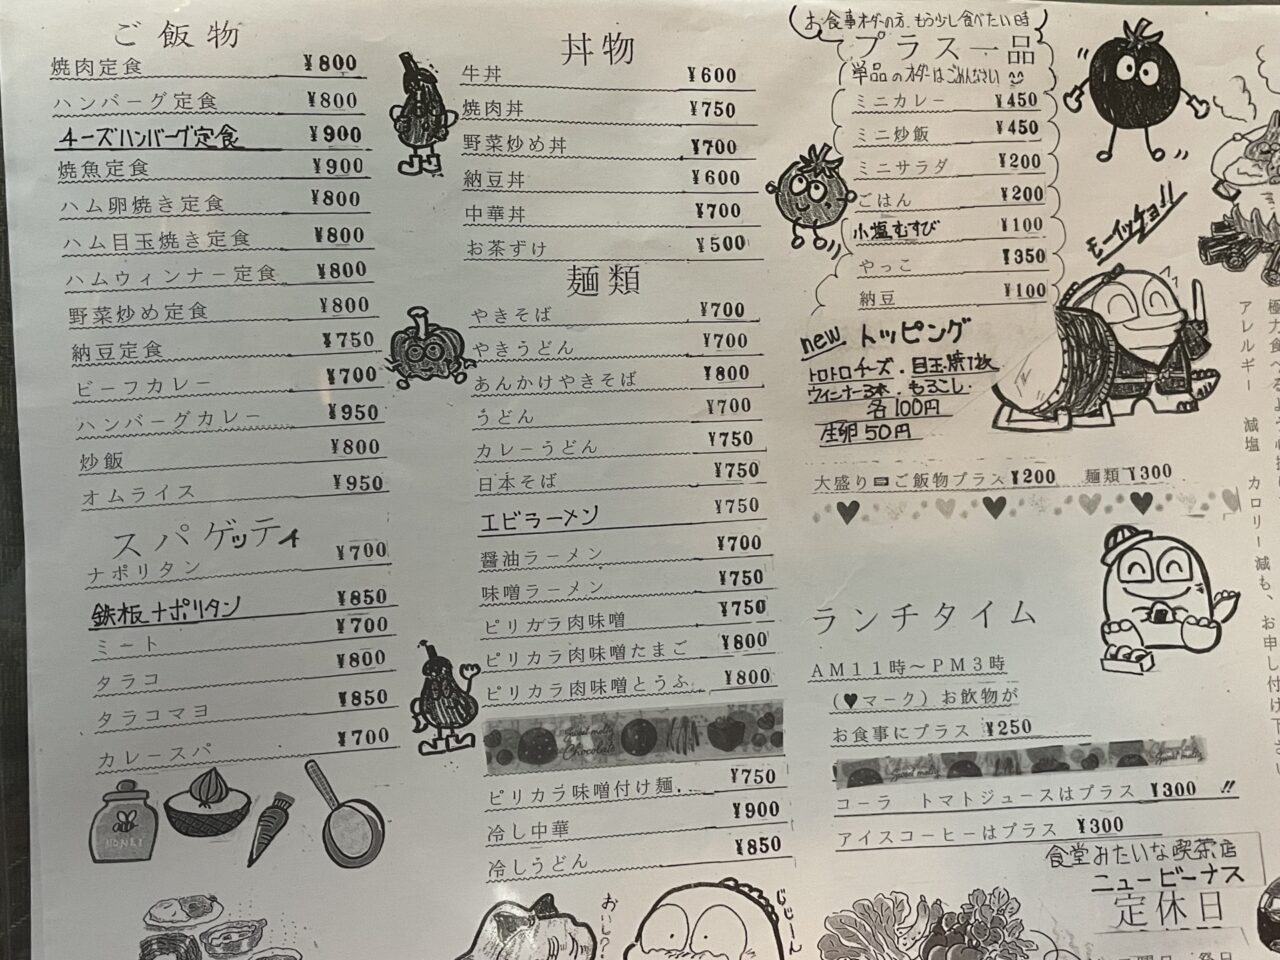 ご飯物
焼肉定食 ¥800
ハンバーグ定食 ¥800
チーズハンバーグ定食 ¥900
焼魚定食 ¥900
ハム卵焼き定食 ¥800
ハム目玉焼き定食 ¥800
ハムウィンナー定食 ¥800
野菜炒め定食 ¥800
納豆定食 ¥750
ビーフカレー ¥700
ハンバーグカレー ¥950
炒飯 ¥800
オムライス ¥950
スパゲッティ
ナポリタン ¥700
鉄板ナポリタン ¥850
ミート ¥700
タラコ ¥800
タラコマヨ ¥850
カレースパ ¥700
HONEY
丼物
牛丼 ¥600
焼肉丼 ¥750
野菜炒め丼 ¥700
納豆丼 ¥600
中華丼 ¥700
お茶ずけ ¥500
麺類
やきそば ¥700
やきうどん ¥700
あんかけやきそば ¥800
うどん ¥700
カレーうどん ¥750
日本そば ¥750
エビラーメン ¥750
醤油ラーメン ¥700
味噌ラーメン ¥750
ピリカラ肉味噌 ¥750
ピリカラ肉味噌たまご ¥800
ピリカラ肉味噌とうふ ¥800
Sweet melty Chocolate
ピリカラ味噌付け麺 ¥750
冷し中華 ¥900
冷しうどん ¥850
おいし?
じじーん
お食事オーダーの方、もう少し食べたい時
プラス一品
単品のオーダーはごめんなさい
ミニカレー ¥450
ミニ炒飯 ¥450
ミニサラダ ¥200
ごはん ¥200
小塩むすび ¥100
やっこ ¥350
納豆 ¥100
モーイッチョ!!
new トッピング
トロトロチーズ・目玉焼1枚
ウィンナー3本・もろこし・
各100円
生卵50円
大盛り ご飯物プラス¥200 麺類¥300
ランチタイム
AM11時～PM3時
(♥マーク) お飲物が
お食事にプラス ¥250
Sweet melty
コーラ トマトジュースはプラス ¥300 !!
アイスコーヒーはプラス ¥300
食堂みたいな喫茶店
ニュービーナス
定休日
アレルギー 減塩 カロリー減も、お申し付け下